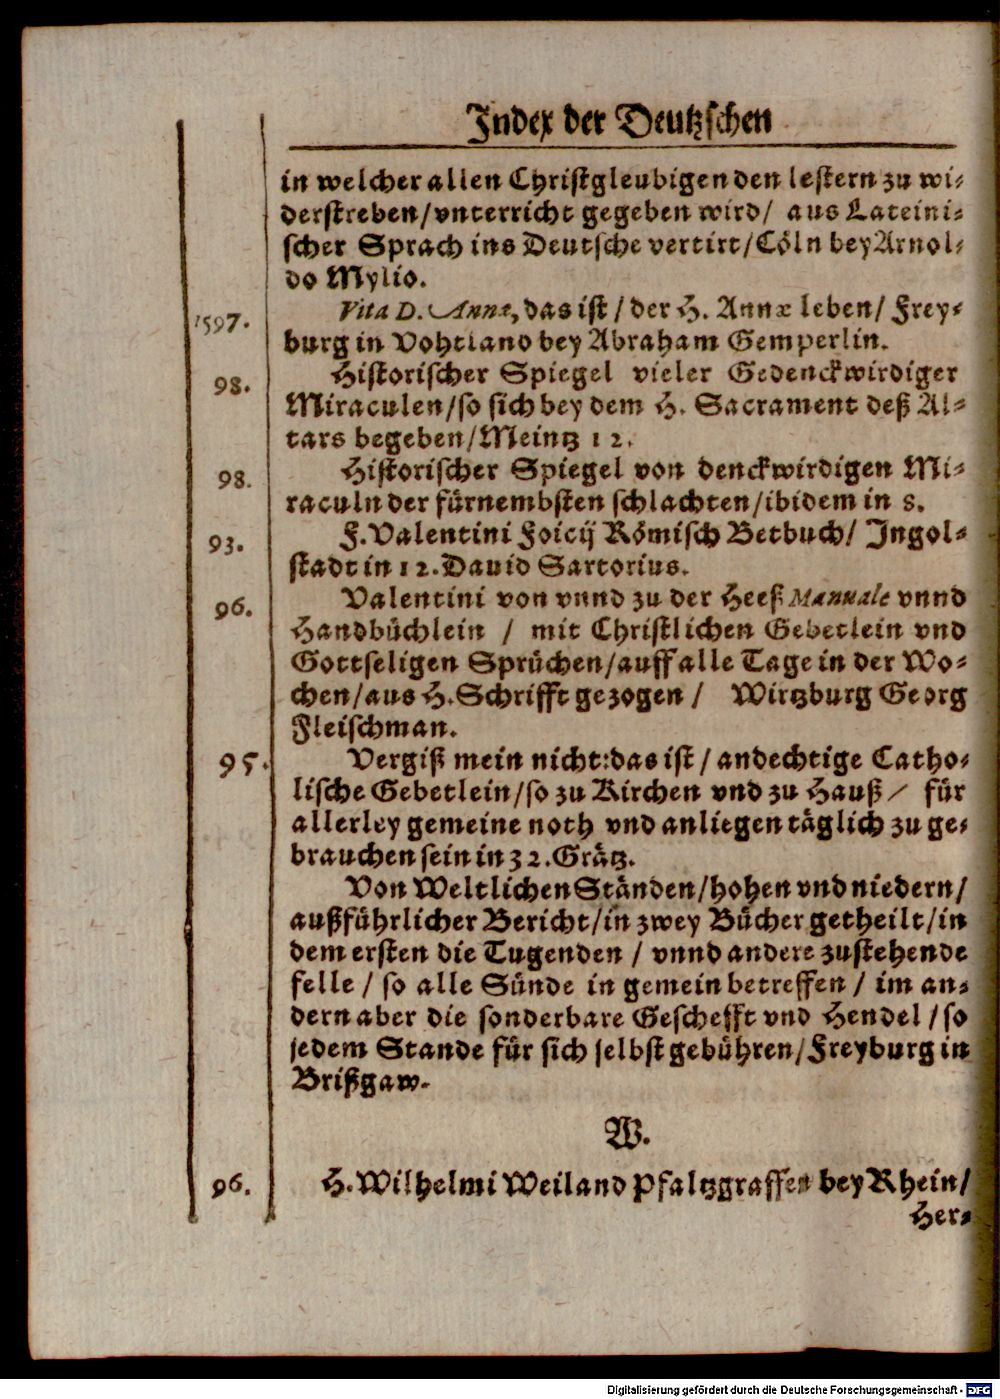 Index der Deutzschen
in welcher allen Christgleubigen den lestern zu wi-
derstreben/vnterricht gegeben wird/ aus Lateini-
scher Sprach ins Deutsche vertirt/Cöln bey Arnol-
do Mylio.
1597. Vita D. Annæ, das ist / der H. Annæ leben/ Frey-
burg in Vohtland bey Abraham Gemperlin.
98. Historischer Spiegel vieler Gedenckwirdiger
Miraculen/so sich bey dem H. Sacrament deß Al-
tars begeben/Meintz 12.
98. Historischer Spiegel von denckwirdigen Mi-
raculn der fürnembsten schlachten/ibidem in 8.
93. F. Valentini Foicij Römisch Betbuch/ Ingol-
stadt in 12. Dauid Sartorius.
96. Valentini von vnnd zu der Heeß Manuale vnnd
Handbüchlein / mit Christlichen Gebetlein vnd
Gottseligen Sprüchen/auff alle Tage in der Wo-
chen/aus H. Schrifft gezogen / Wirtzburg Georg
Fleischman.
95. Vergiß mein nicht:das ist / andechtige Catho-
lische Gebetlein/so zu Kirchen vnd zu Hauß / für
allerley gemeine noth vnd anliegen täglich zu ge-
brauchen sein in 32. Grätz.
Von Weltlichen Ständen/hohen vnd niedern/
außführlicher Bericht/in zwey Bücher getheilt/in
dem ersten die Tugenden / vnnd andere zustehende
felle / so alle Sünde in gemein betreffen / im an-
dern aber die sonderbare Geschefft vnd Hendel /so
jedem Stande für sich selbst gebühren/Freyburg in
Brißgaw.
W.
96. H. Wilhelmi Weiland Pfaltzgraffen bey Rhein/
Her-
Digitalisierung gefördert durch die Deutsche Forschungsgemeinschaft - DFG